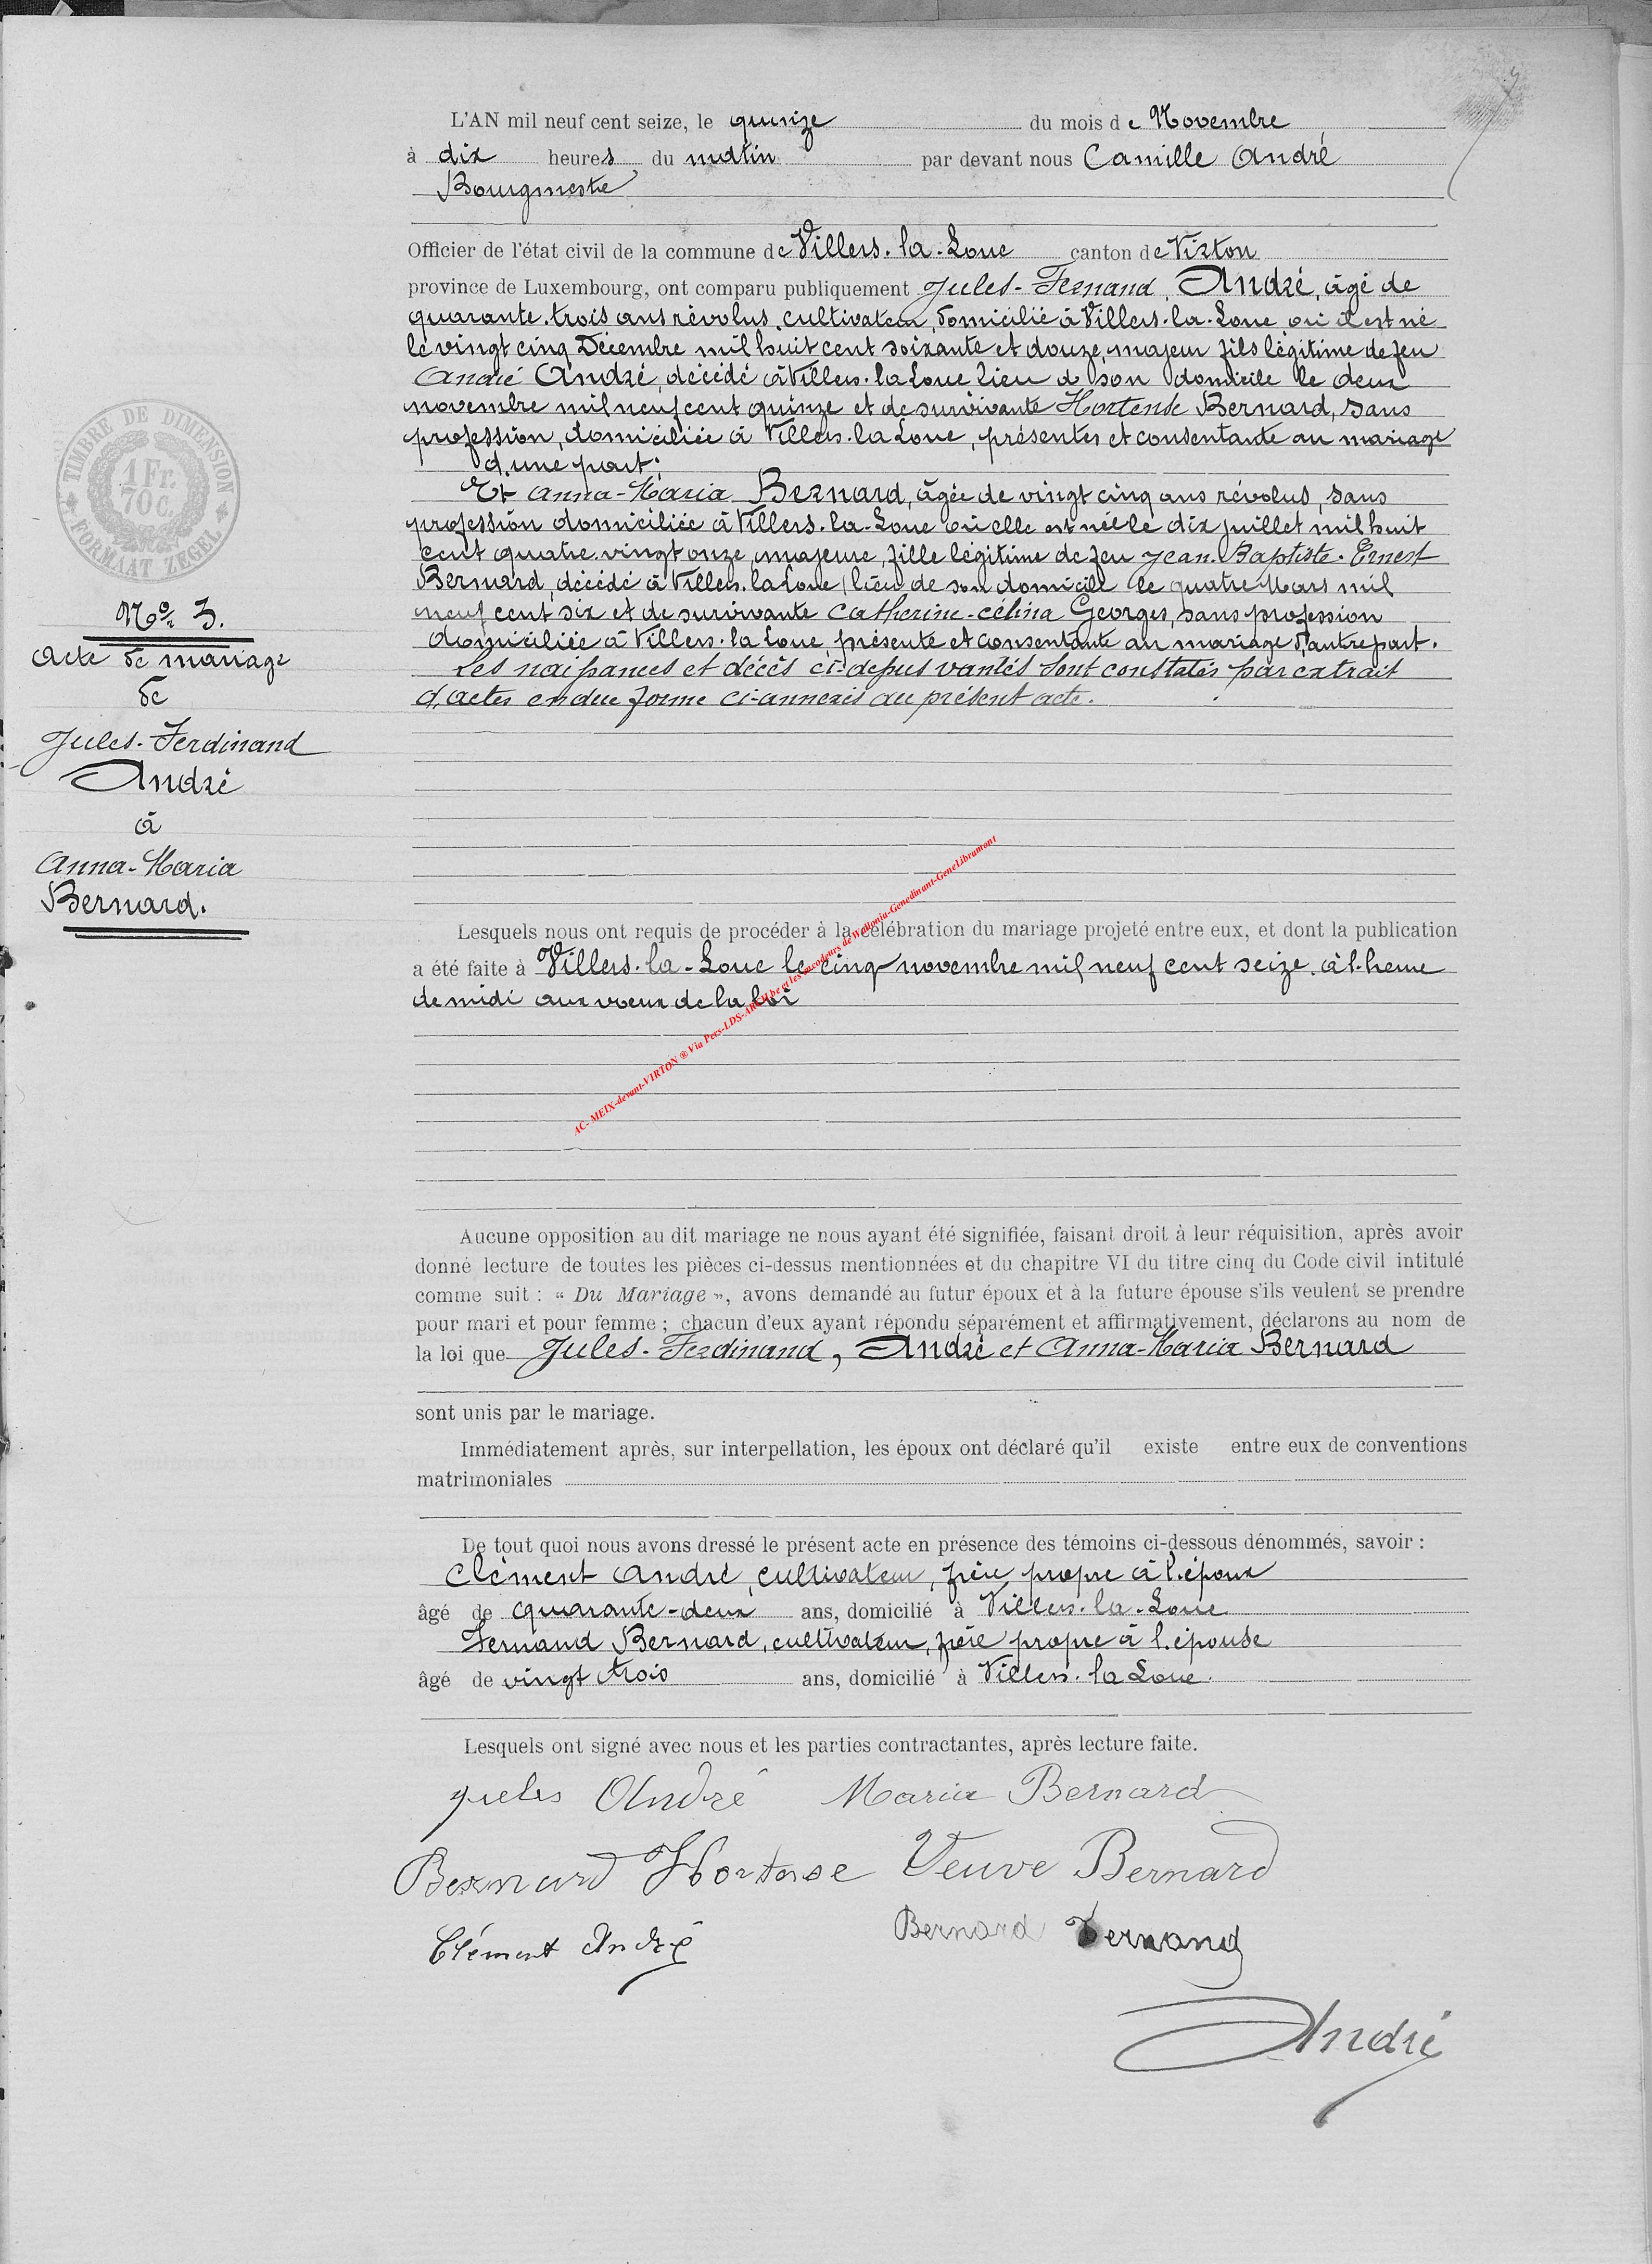 L'AN mil neuf cent seize, le quinze du mois de Novembre
à dix heures du matin par devant nous Camille André
Bourgmestre
Officier de l'état civil de la commune de Villers-la-Loue canton de Virton
province de Luxembourg, ont comparu publiquement Jules-Fernand André, âgé de
quarante-trois ans révolus, cultivateur, domicilié à Villers-la-Loue où il est né
le vingt cinq Décembre mil huit cent soixante et douze, majeur fils légitime de feu
André André, décédé à Villers-la Loue lieu de son domicile le deux
novembre mil neuf cent quinze et de survivante Hortense Bernard, sans
profession, domiciliée à Villers-la Loue, présente et consentante au mariage
d'une part;
Et Anna-Maria Bernard, âgée de vingt cinq ans révolus, sans
profession domiciliée à Villers-la-Loue où elle est née le dix juillet mil huit
cent quatre-vingt onze, majeure, fille légitime de feu Jean-Baptiste-Ernest
Bernard, décédé à Villers-la Loue (lieu de son domicile le quatre Mars mil
neuf cent six et de survivante Catherine-Célina Georges, sans profession
domiciliée à Villers-la Loue, présente et consentante au mariage d'autre part.
Les naissances et décès ci-dessus vantés sont constatés par extrait
d'actes en due forme ci-annexés au présent acte.
TIMBRE DE DIMENSION
1 Fr.
70 c.
FORMAAT ZEGEL
No 3.
Acte de mariage
de
Jules-Ferdinand
André
à
Anna-Maria
Bernard.
Lesquels nous ont requis de procéder à la célébration du mariage projeté entre eux, et dont la publication
a été faite à Villers-la-Loue le cinq novembre mil neuf cent seize à l'heure
de midi aux vœux de la loi
Aucune opposition au dit mariage ne nous ayant été signifiée, faisant droit à leur réquisition, après avoir
donné lecture de toutes les pièces ci-dessus mentionnées et du chapitre VI du titre cinq du Code civil intitulé
comme suit : « Du Mariage », avons demandé au futur époux et à la future épouse s'ils veulent se prendre
pour mari et pour femme ; chacun d'eux ayant répondu séparément et affirmativement, déclarons au nom de
la loi que Jules-Ferdinand, André et Anna-Maria Bernard
sont unis par le mariage.
Immédiatement après, sur interpellation, les époux ont déclaré qu'il existe entre eux de conventions
matrimoniales
De tout quoi nous avons dressé le présent acte en présence des témoins ci-dessous dénommés, savoir :
Clément André, cultivateur, frère propre à l'époux
âgé de quarante-deux ans, domicilié à Villers-la-Loue
Fernand Bernard, cultivateur, frère propre à l'épouse
âgé de vingt trois ans, domicilié à Villers-la Loue.
Lesquels ont signé avec nous et les parties contractantes, après lecture faite.
Jules André Maria Bernard
Bernard Hortense Veuve Bernard
Clément André Bernard Fernand
André